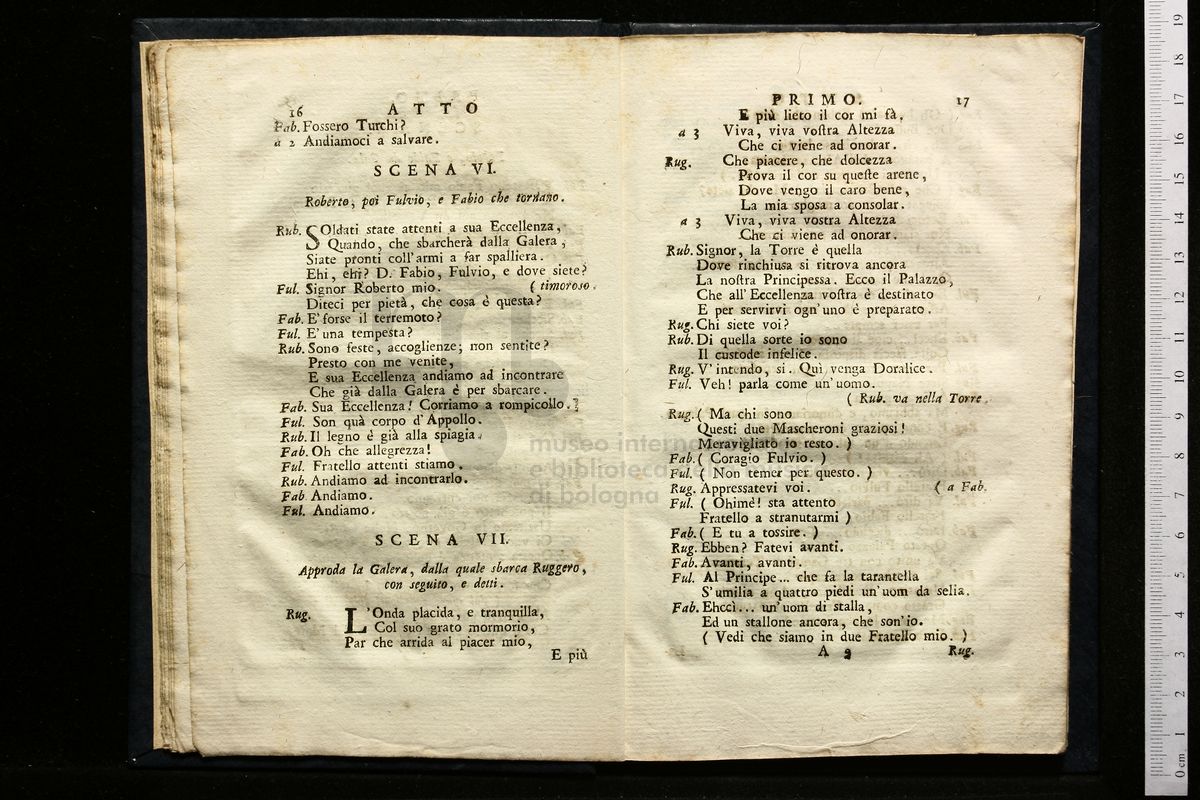 16 ATTO
Fab. Fossero Turchi?
a 2 Andiamoci a salvare.
SCENA VI.
Roberto, poi Fulvio, e Fabio che tornano.
Rub. SOldati state attenti a sua Eccellenza,
Quando, che sbarcherà dalla Galera,
Siate pronti coll'armi a far spalliera.
Ehi, ehi? D. Fabio, Fulvio, e dove siete?
Ful. Signor Roberto mio. ( timoroso.
Diteci per pietà, che cosa è questa?
Fab. E' forse il terremoto?
Ful. E' una tempesta?
Rub. Sono feste, accoglienze; non sentite?
Presto con me venite,
E sua Eccellenza andiamo ad incontrare
Che già dalla Galera è per sbarcare.
Fab. Sua Eccellenza! Corriamo a rompicollo.
Ful. Son quà corpo d'Appollo.
Rub. Il legno è già alla spiagia.
Fab. Oh che allegrezza!
Ful. Fratello attenti stiamo.
Rub. Andiamo ad incontrarlo.
Fab. Andiamo.
Ful. Andiamo.
SCENA VII.
Approda la Galera, dalla quale sbarca Ruggero,
con seguito, e detti.
Rug. L'Onda placida, e tranquilla,
Col suo grato mormorio,
Par che arrida al piacer mio,
E più
PRIMO. 17
E più lieto il cor mi fà.
a 3 Viva, viva voſtra Altezza
Che ci viene ad onorar.
Rug. Che piacere, che dolcezza
Prova il cor su queſte arene,
Dove vengo il caro bene,
La mia sposa a consolar.
a 3 Viva, viva vostra Altezza
Che ci viene ad onorar.
Rub. Signor, la Torre è quella
Dove rinchiusa si ritrova ancora
La noſtra Principessa. Ecco il Palazzo,
Che all'Eccellenza voſtra è destinato
E per servirvi ogn'uno è preparato.
Rug. Chi siete voi?
Rub. Di quella sorte io sono
Il custode infelice.
Rug. V' intendo, si. Quì venga Doralice.
Ful. Veh! parla come un'uomo.
( Rub. va nella Torre.
Rug. ( Ma chi sono
Questi due Mascheroni graziosi!
Meravigliato io resto. )
Fab. ( Coragio Fulvio. )
Ful. ( Non temer per questo. )
Rug. Appressatevi voi. ( a Fab.
Ful. ( Ohimè! sta attento
Fratello a stranutarmi )
Fab. ( E tu a tossire. )
Rug. Ebben? Fatevi avanti.
Fab. Avanti, avanti.
Ful. Al Principe... che fa la tarantella
S'umilia a quattro piedi un'uom da sella.
Fab. Ehccì... un'uom di stalla,
Ed un stallone ancora, che son'io.
( Vedi che siamo in due Fratello mio. )
A 9 Rug.
museo interna
e biblioteca
di bologna
0 cm 1 2 3 4 5 6 7 8 9 10 11 12 13 14 15 16 17 18 19